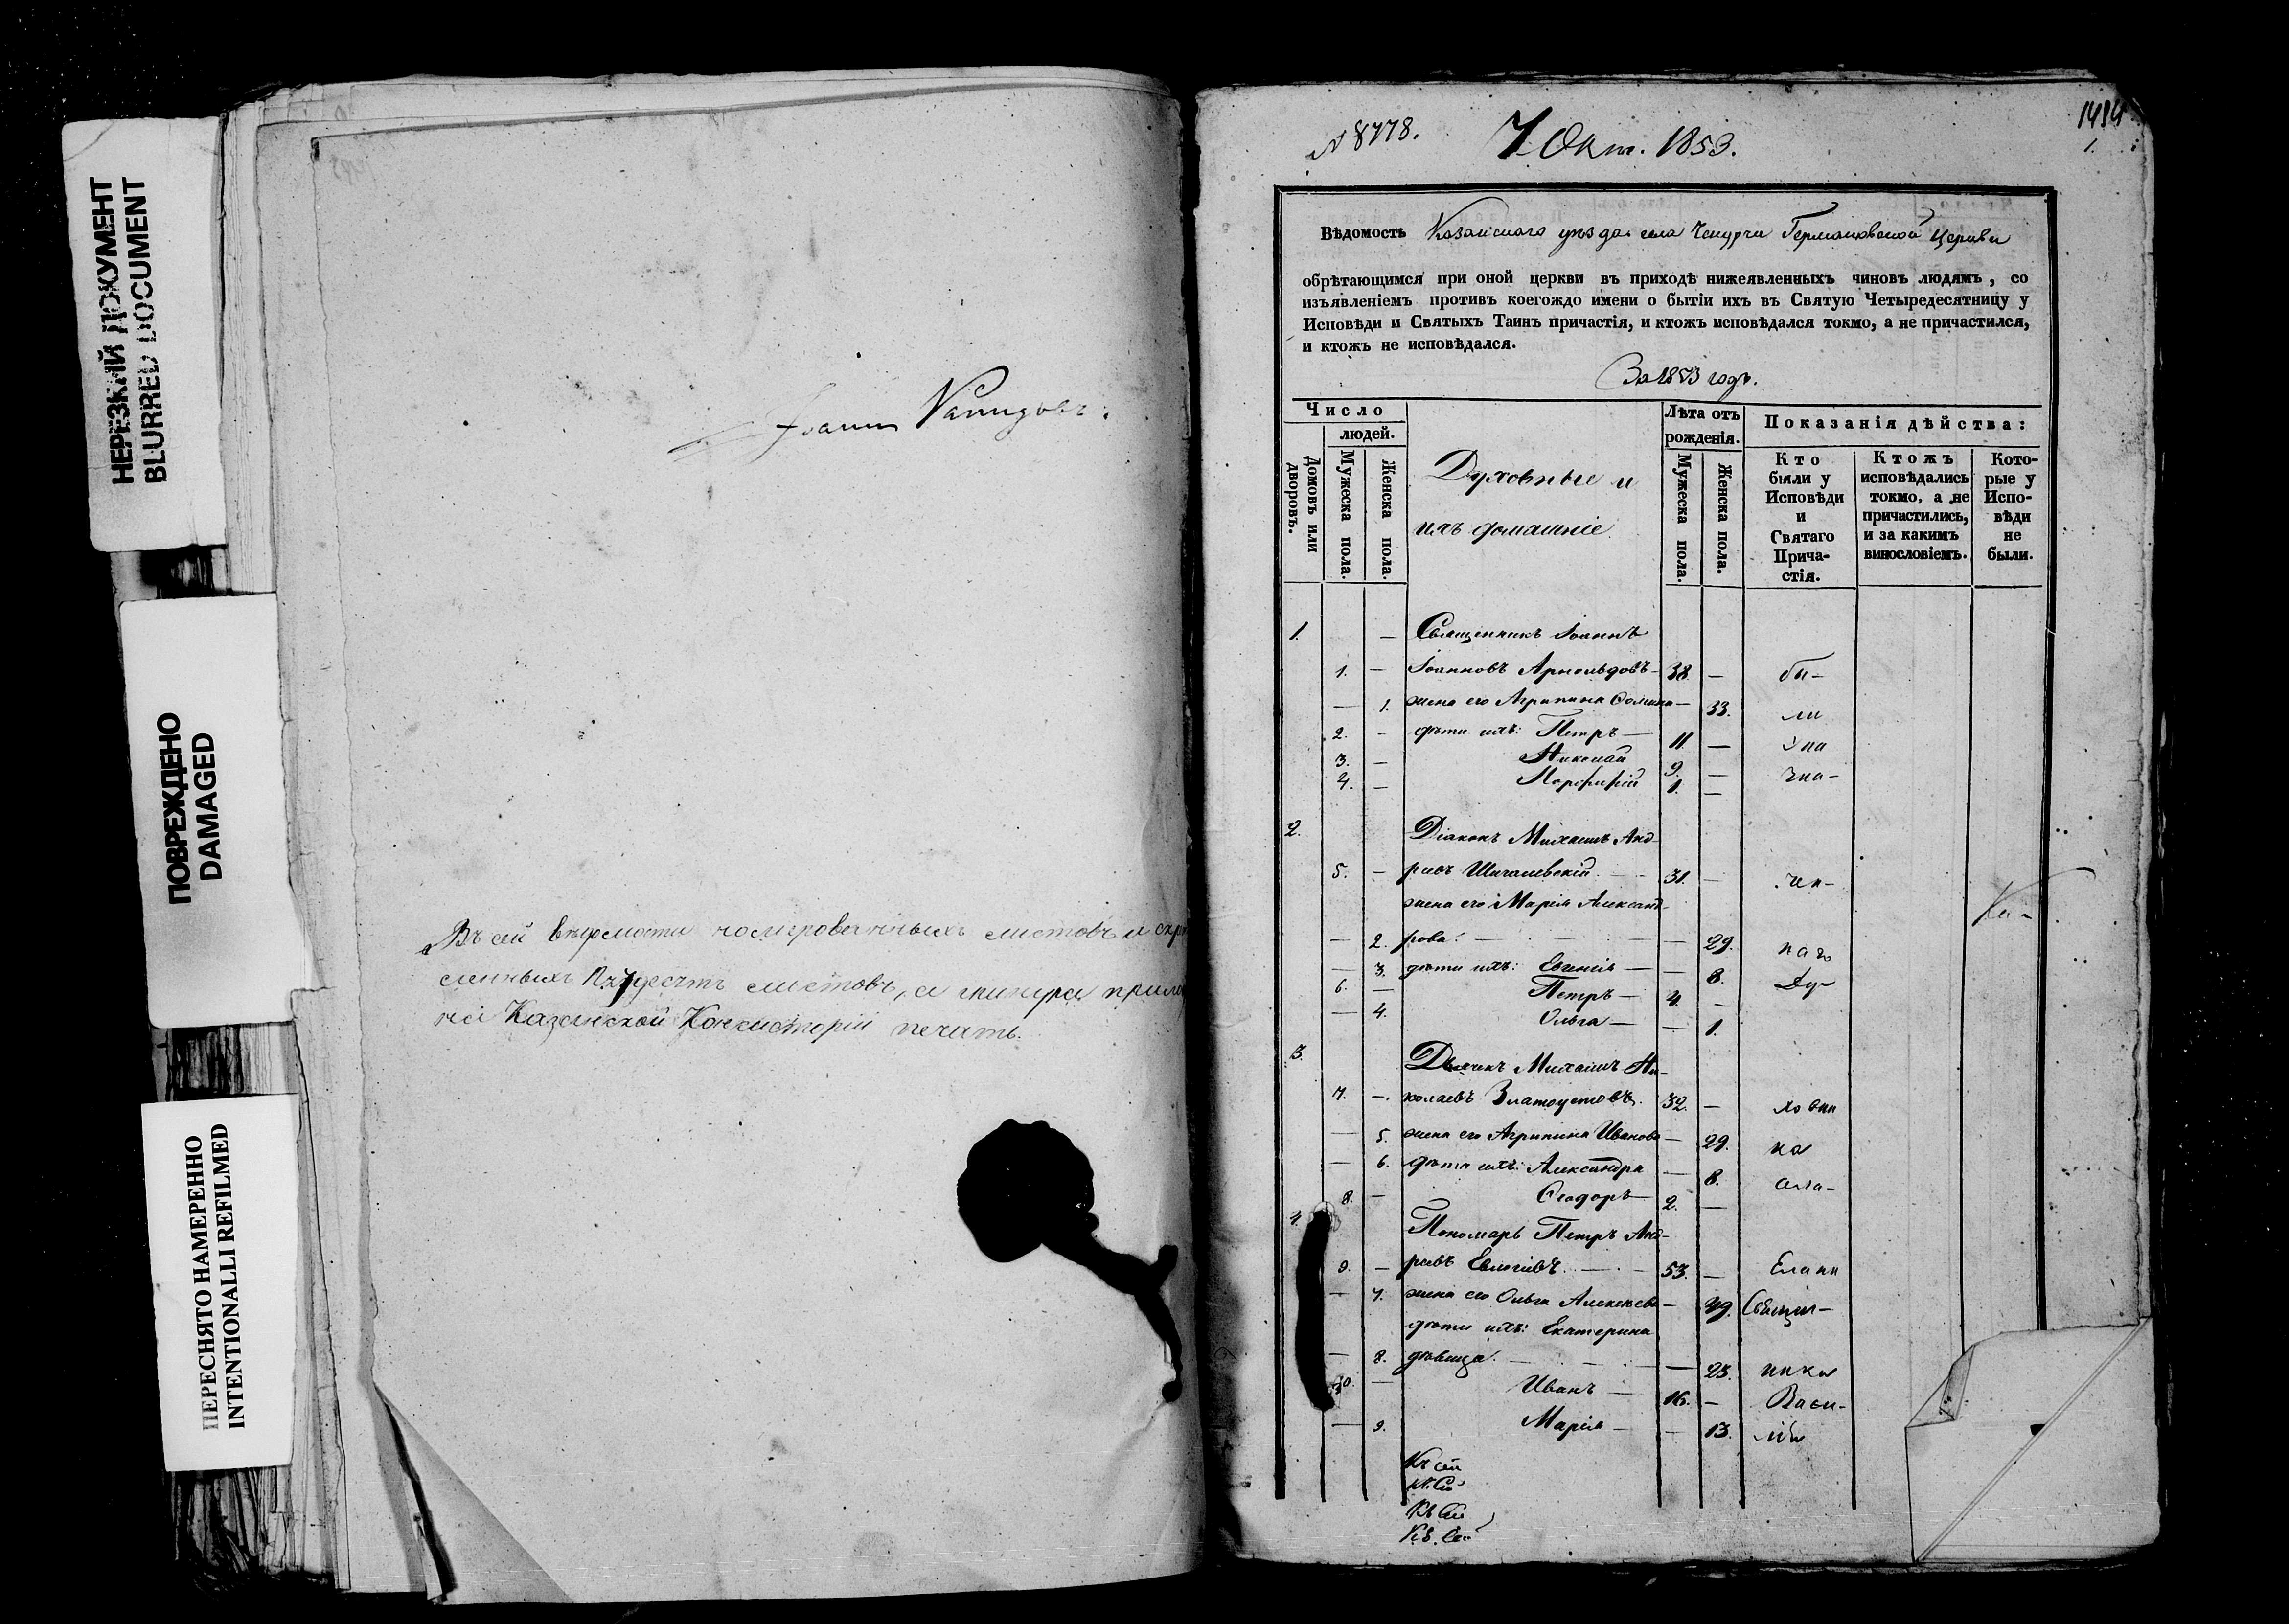 НЕРЕЗКИЙ ДОКУМЕНТ
BLURRED DOCUMENT
ПОВРЕЖДЕНО
DAMAGED
ПЕРЕСНЯТО НАМЕРЕННО
INTENTIONALLI REFILMED
Въ сей вѣдомости номерованныхъ листовъ и скрѣ
пленныхъ листовъ, а шнура прило
на Казанской Консисторіи печать.
№ 8778.
7 Окт. 1853.
1494
1.
Вѣдомость Казанскаго уѣзда села Чепурчи Германовской церкви
обрѣтающимся при оной церкви въ приходѣ нижеявленныхъ чиновъ людямъ, со
изъявленіемъ противъ коегождо имени о бытіи ихъ въ Святую Четыредесятницу у
Исповѣди и Святыхъ Таинъ причастія, и ктожъ исповѣдался токмо, а не причастился,
и ктожъ не исповѣдался.
За 1853 годъ.
Число
людей.
Домовъ или дворовъ.
Мужеска пола.
Женска пола.
Духовные и
ихъ домашніе
Лѣта отъ рожденія.
Мужеска пола.
Женска пола.
Показанія дѣйства:
Кто были у Исповѣди и Святаго Прича-стія.
Ктожъ исповѣдались токмо, а не причастились, и за какимъ винословіемъ.
Кото-рые у Испо-вѣди не были.
1. — Священникъ Іоаннъ
1. — Іоанновъ Арнольдовъ — 38. — бы-
— 1. жена его Агрипина Фомина — 33. ли
2. — дѣти ихъ: Петръ — 11. —
3. — Николай 9. —
4. — Порфирій 1. —
2. Діаконъ Михаилъ Анд-
5. — реевъ Шигалевскій — 31. —
жена его Марія Александ-
— 2. рова. — 29.
— 3. дѣти ихъ: Евгенія — 8. Ду-
6. — Петръ — 4. —
— 4. Ольга — 1.
3. Дьячекъ Михаилъ Ни-
7. — колаевъ Златоустовъ. 32. — ховни
— 5. жена его Агрипина Иванова — 29. ка
— 6. дѣти ихъ: Александра — 8.
8. — Ѳеодоръ — 2. —
4. Пономарь Петръ Анд-
9. — реевъ Евлогіевъ. — 53. —
— 7. жена его Ольга Алексѣева — 49. Священ-
дѣти ихъ: Екатерина
— 8. дѣвица. — 23. ника
10. — Иванъ — 16. — Васи-
— 9. Марія — 13. лія
Къ сей